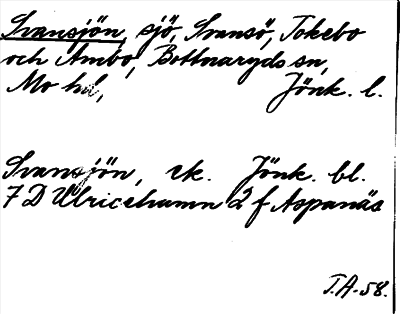 Svansjön, sjö, Svansö, Tokebo
och Ambo, Bottnaryds sn,
Mo hd, Jönk. l.
Svansjön, ek. Jönk. bl.
7 D Ulricehamn 2 f Aspanäs
T.A. 58.